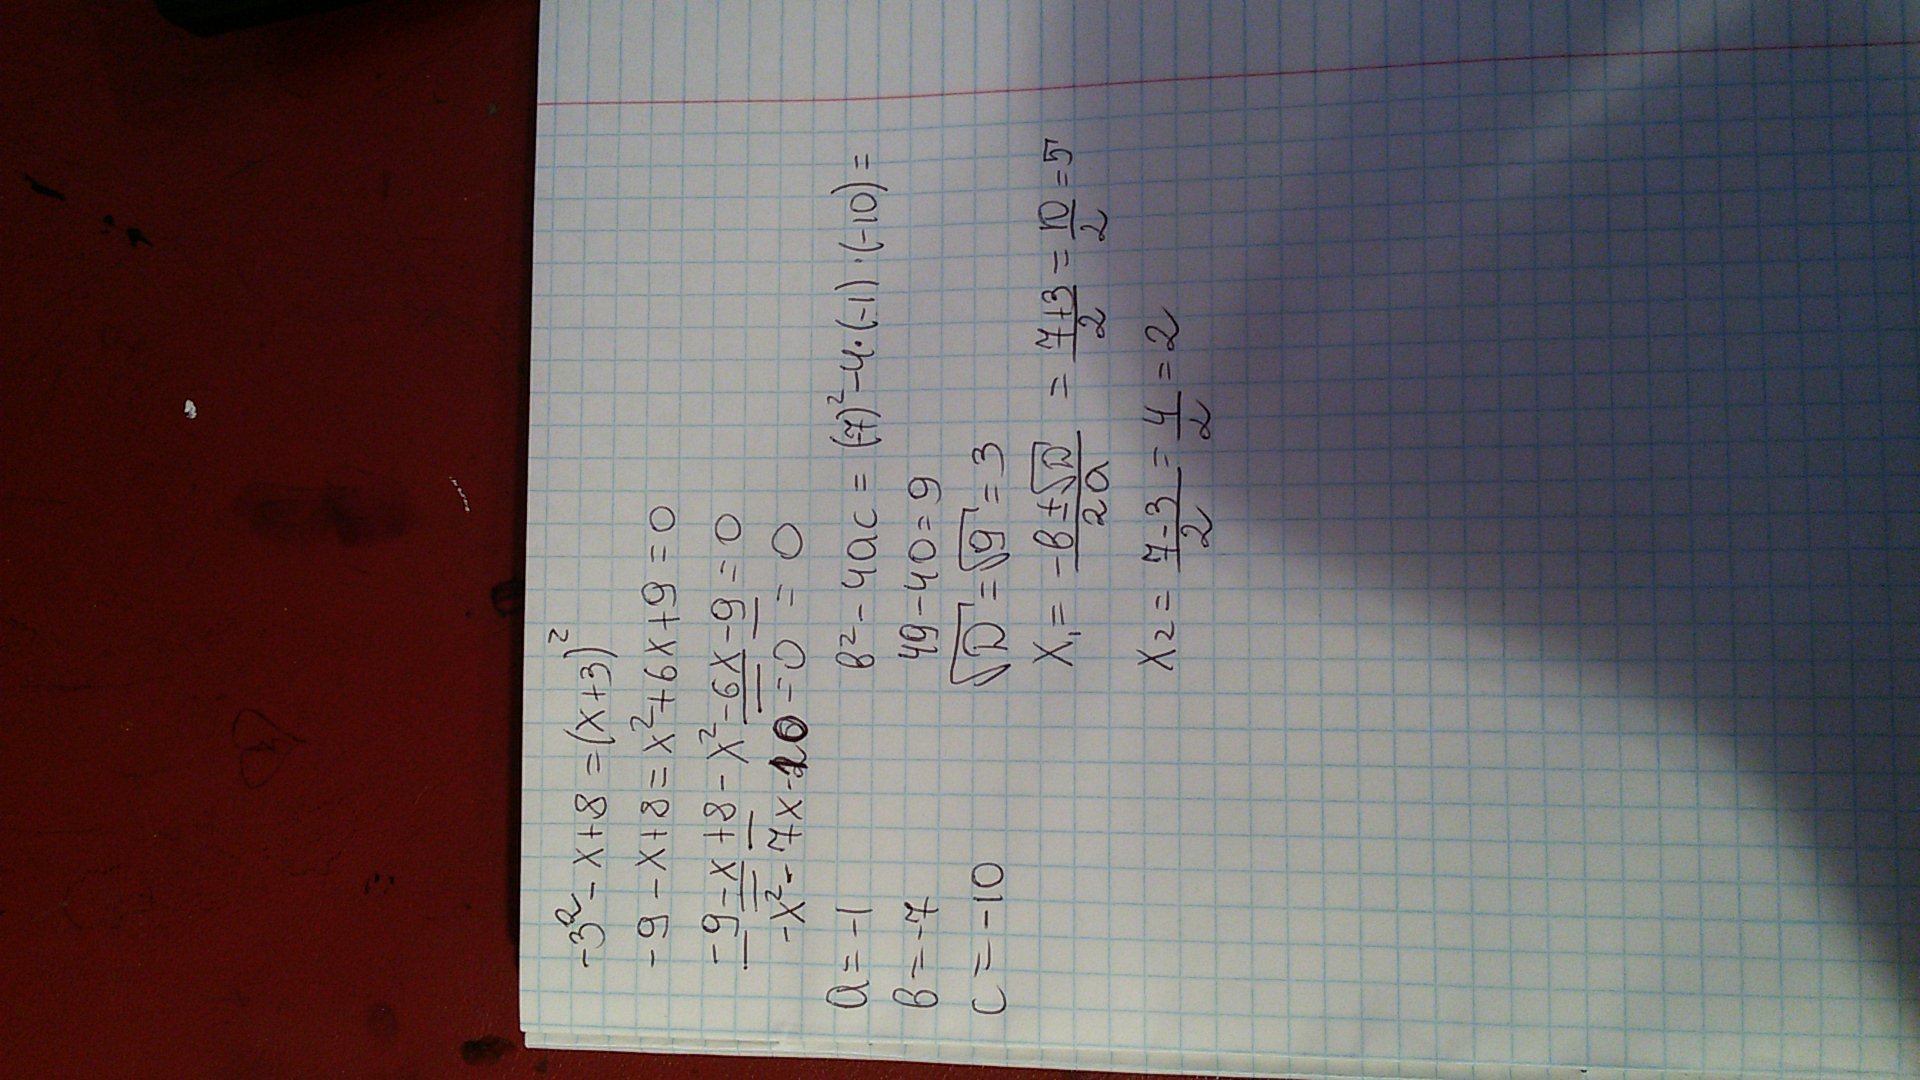 -3² - x + 8 = (x + 3)²
-9 - x + 8 = x² + 6x + 9 = 0
-9 - x + 8 - x² - 6x - 9 = 0
-x² - 7x - 10 = 0 = 0
a = -1
в = -7
c = -10
в² - 4ac = (-7)² - 4·(-1)·(-10) =
49 - 40 = 9
√D = √9 = 3
x₁ = (-в ± √D)/2a = (7+3)/2 = 10/2 = 5
x₂ = (7-3)/2 = 4/2 = 2